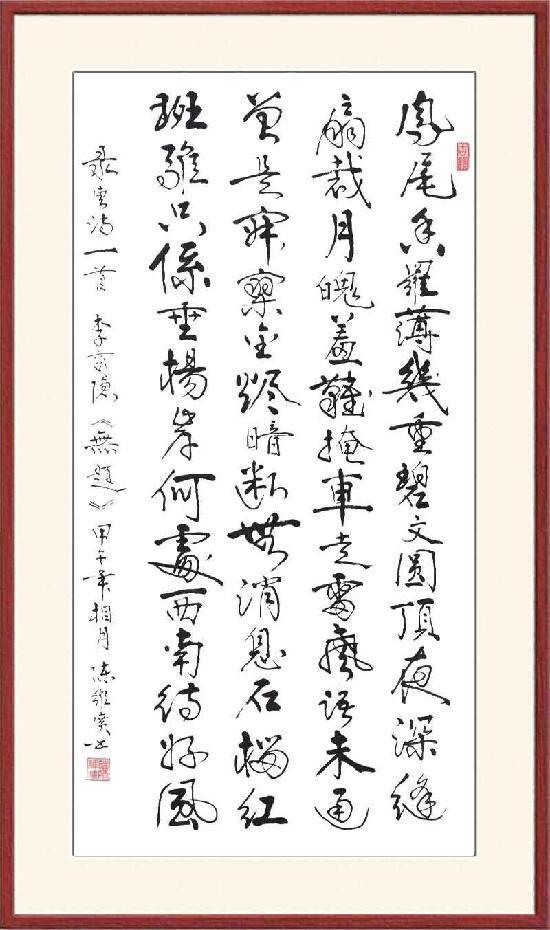 鳳尾香羅薄幾重碧文圓頂夜深縫
扇裁月魄羞難掩車走雷聲語未通
曾是寂寥金燼暗斷無消息石榴紅
班騅只係垂楊岸何處西南待好風
录唐诗一首 李商隐《無題》甲午年相月 陈 书